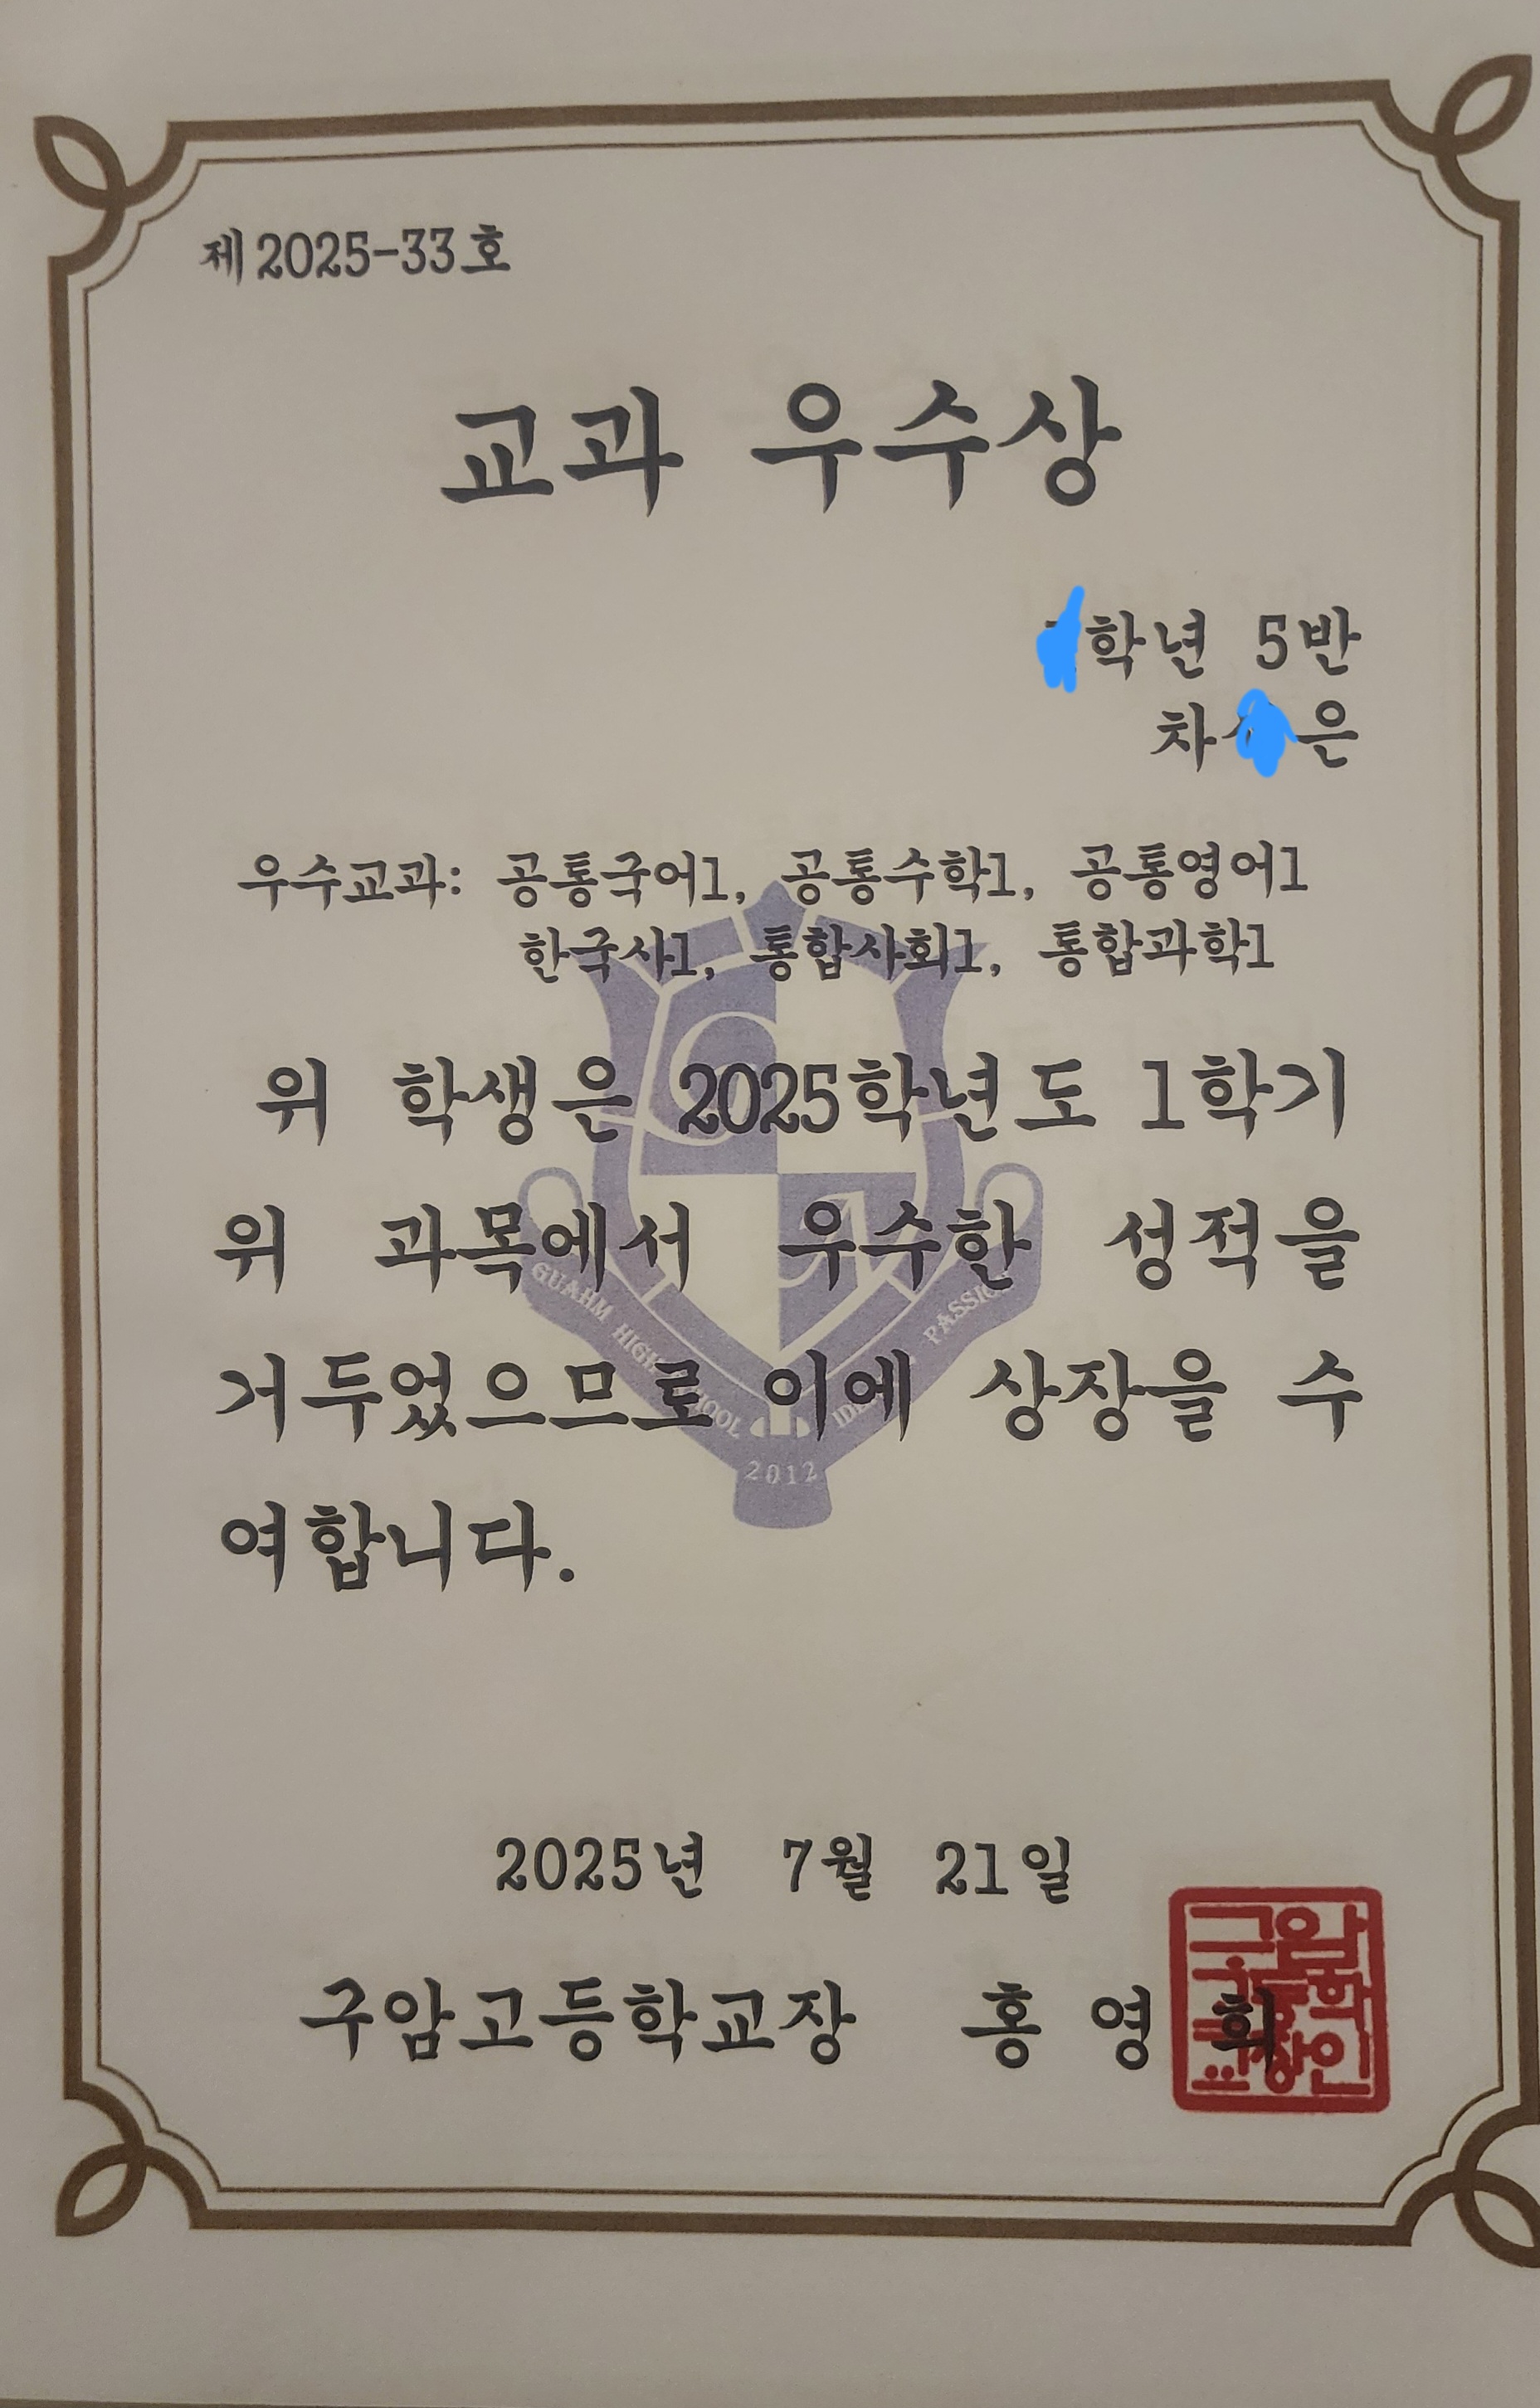 제2025-33호
교과 우수상
학년 5반
차 은
우수교과: 공통국어1, 공통수학1, 공통영어1
한국사1, 통합사회1, 통합과학1
위 학생은 2025학년도 1학기
위 과목에서 우수한 성적을
거두었으므로 이에 상장을 수
여합니다.
GUAHM HIGH SCHOOL
2012
2025년 7월 21일
구암고등학교장 홍 영 희